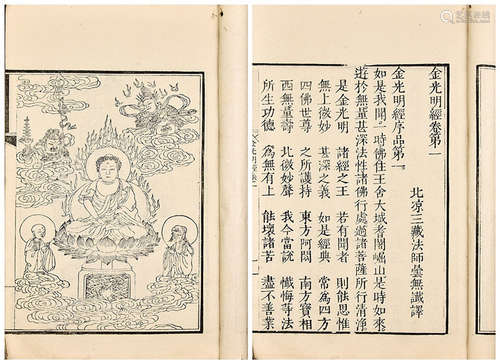 金光明經卷第一
北凉三藏法師曇無讖譯
金光明經序品第一
如是我聞一時佛住王舍大城耆闍崛山是時如來
遊扵無量甚深法性諸佛行處過諸菩薩所行清淨
是金光明 諸經之王 若有聞者 則能思惟
無上微妙 甚深之義 如是經典 常為四方
四佛世尊 之所護持 東方阿閦 南方寶相
西無量壽 北微妙聲 我今當說 懺悔等法
所生功德 為無有上 能壞諸苦 盡不善業